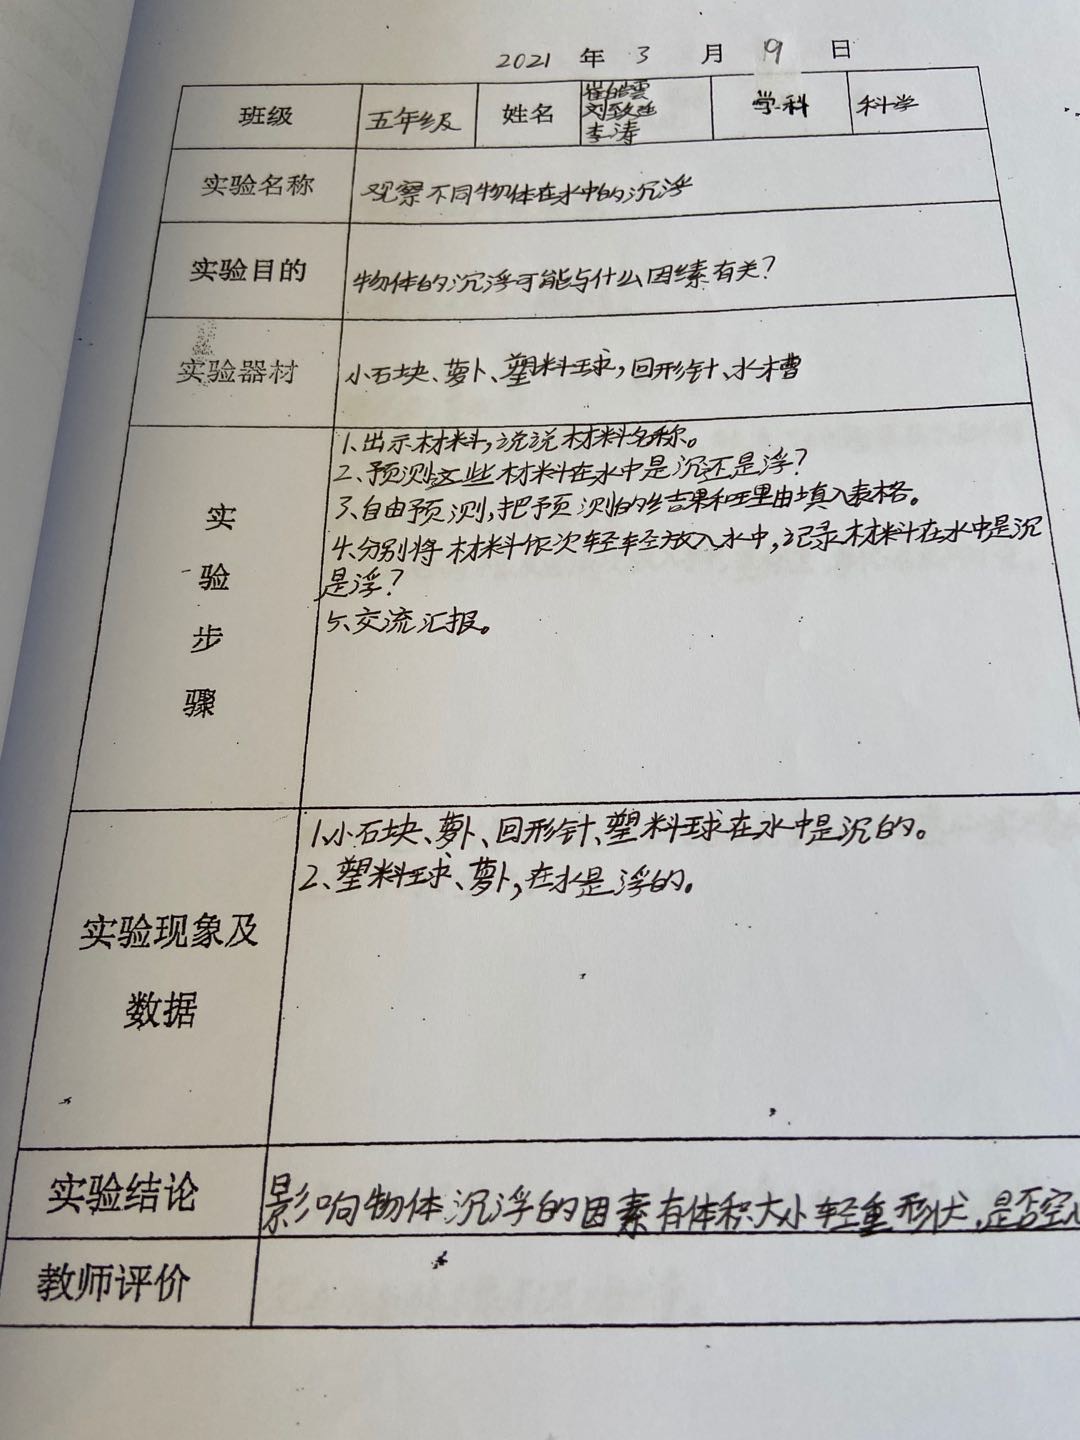 2021 年 3 月 19 日
班级 五年级 姓名 崔皓雲 学科 科学
李涛
实验名称 观察不同物体在水中的沉浮
实验目的 物体的沉浮可能与什么因素有关?
实验器材 小石块、萝卜、塑料球,回形针、水槽
实验步骤
1、出示材料,说说材料名称。
2、预测这些材料在水中是沉还是浮?
3、自由预测,把预测的结果和理由填入表格。
4、分别将材料依次轻轻放入水中,记录材料在水中是沉
是浮?
5、交流汇报。
实验现象及
数据
1、小石块、萝卜、回形针、塑料球在水中是沉的。
2、塑料球、萝卜,在水是浮的。
实验结论 影响物体沉浮的因素有体积大小轻重形状,是否空
教师评价